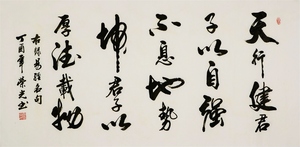 天行健君
子以自强
不息地势
坤君子以
厚德载物
右録易经名句
丁酉年荣光书